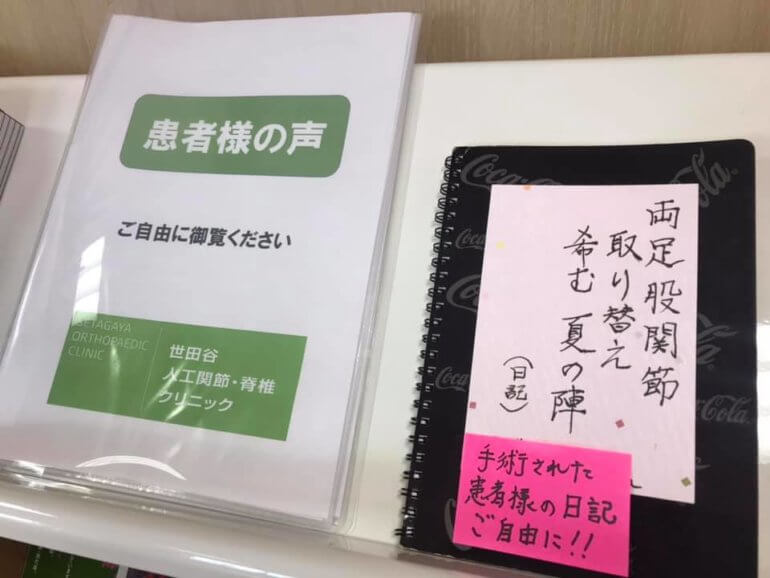 患者様の声
ご自由に御覧ください
SETAGAYA
ORTHOPAEDIC
CLINIC
世田谷
人工関節・脊椎
クリニック
両足股関節
取り替え
希む 夏の陣
(日記)
手術された
患者様の日記
ご自由に!!
Coca-Cola